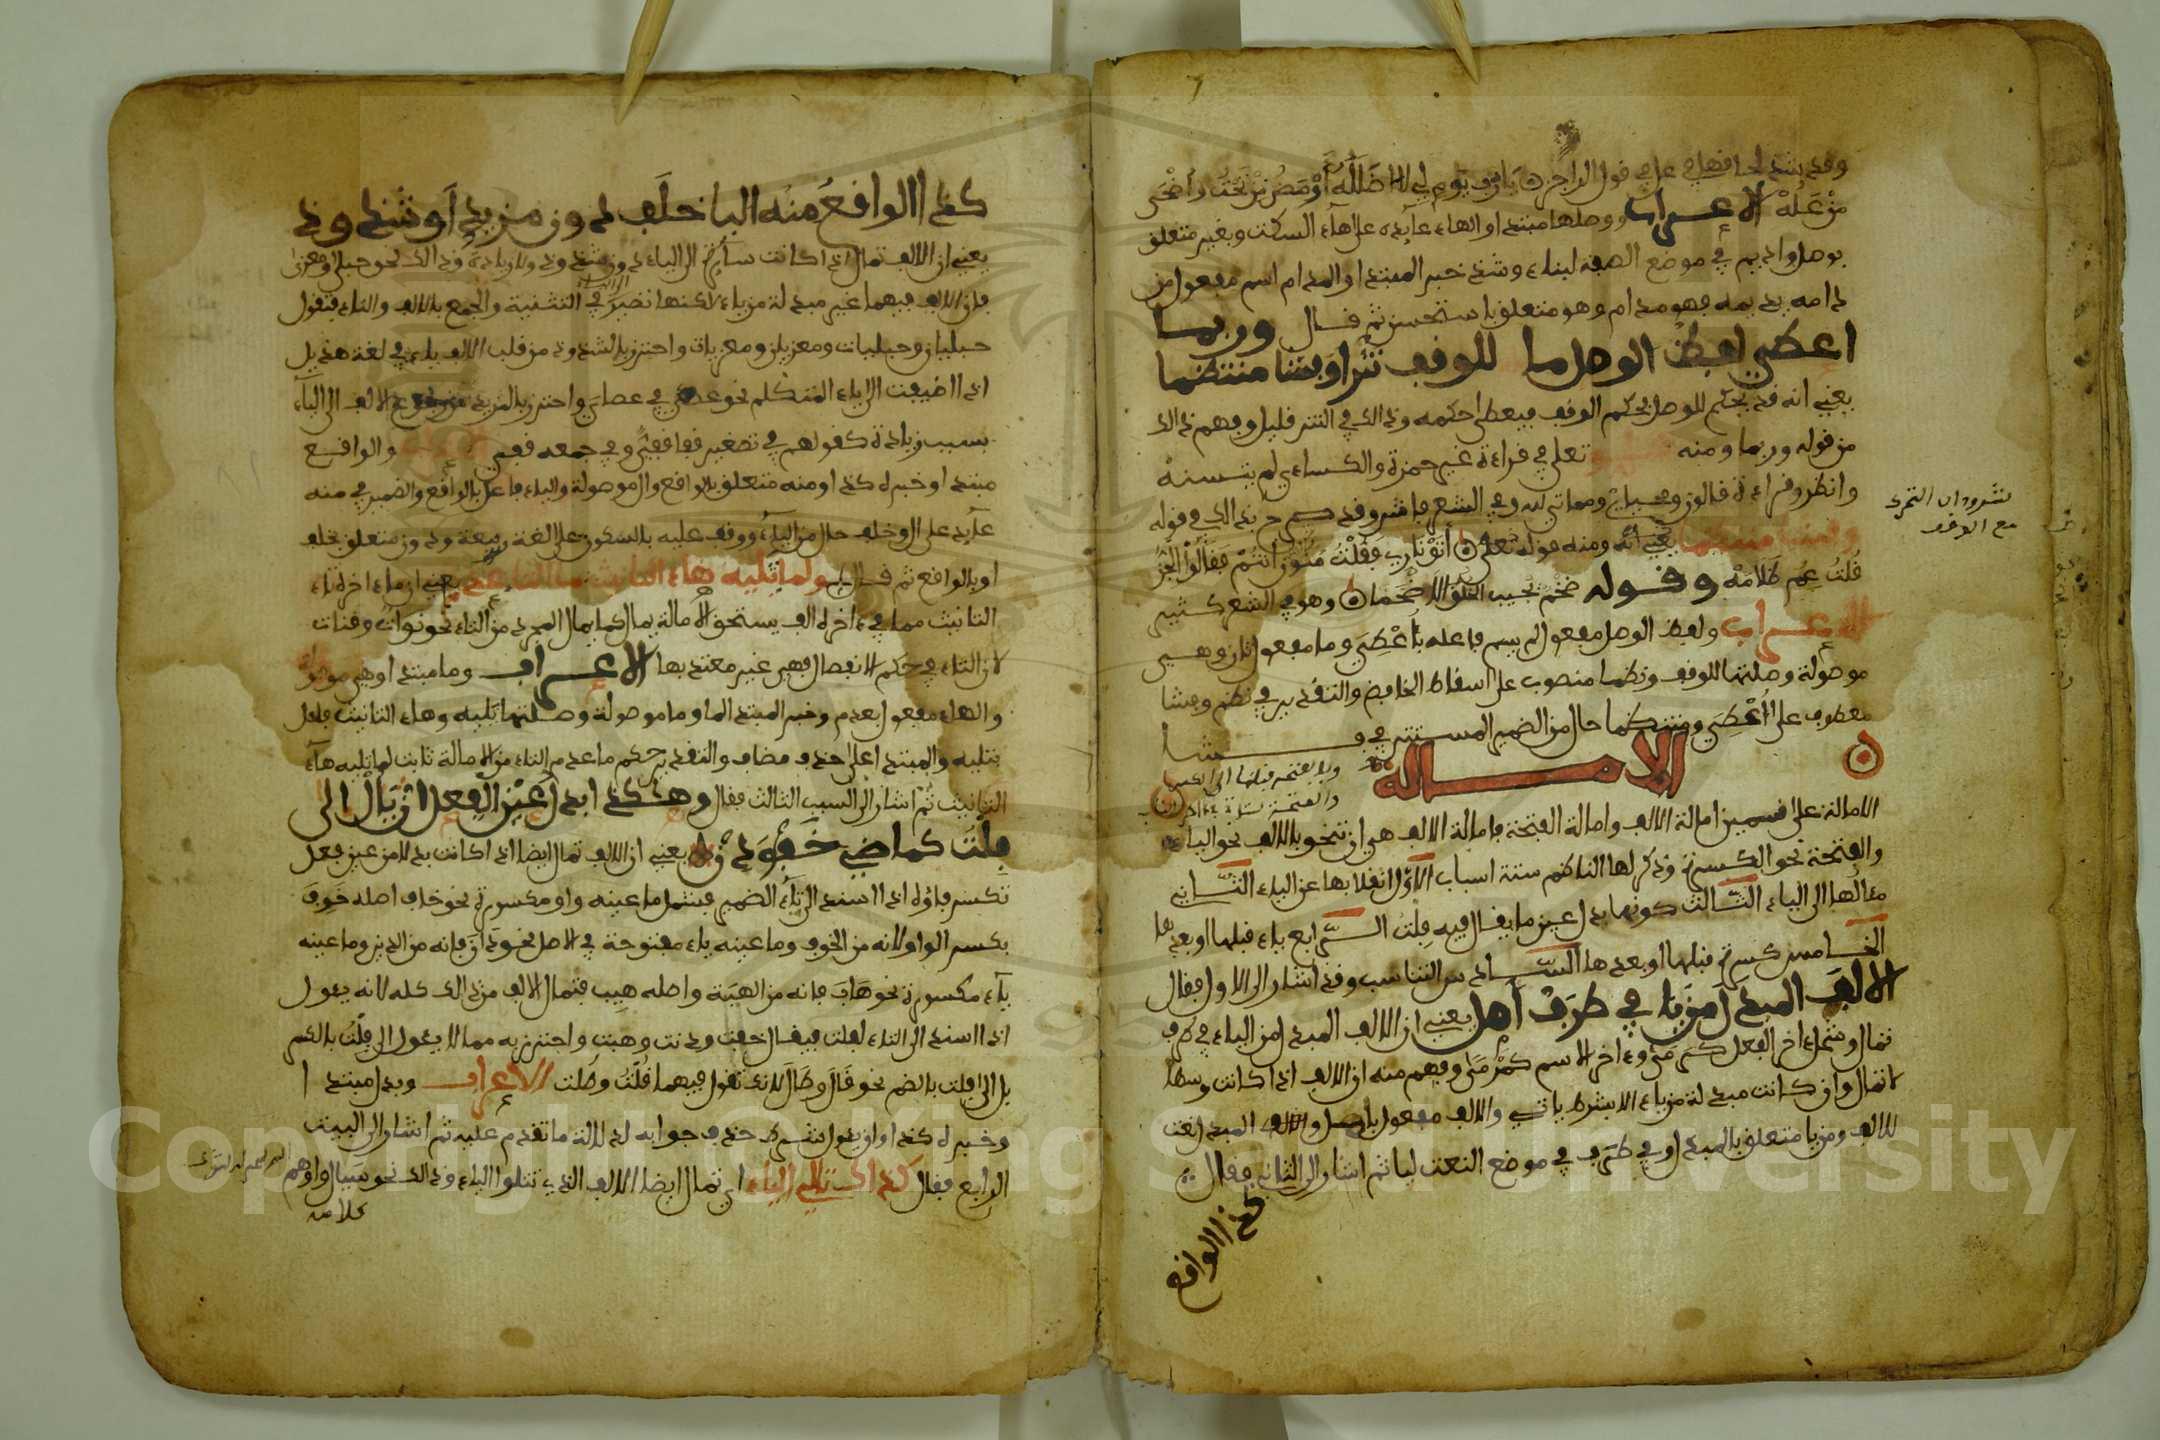 وقد شذ لحاقها في عل في قول الراجز يا رب يوم لي لا اظلله ارمض من تحت واضحى
من عله الاعراب ووصلها مبتدا والهاء عايدة على هاء السكت وبغير متعلق
بوصل واديم في موضع الصفة لبناء وشذ خبر المبتدا والمدام اسم مفعول من
ادامه يديمه فهو مدام وهو متعلق باستحسن ثم قال وربما
اعطي لفظ الوصل ما للوقف نثرا وفشا منتظما
يعني انه قد يحكم للوصل بحكم الوقف فيعطى حكمه وذالك في النثر قليل وفهم ذالك
من قوله وربما ومنه تعلى في قراءة غير حمزة والكساءي لم يتسنه
وانظر وقراءة قالون ومحياي ومماتي لله وفي الشعر
وفشا منتظما يعني انه ومنه قوله اتوا ناري فقلت منون انتم فقالوا الجن
قلت عموا ظلاما وقوله ضخم يحب الخلق الاضخما وهو في الشعر كثير
الاعراب ولفظ الوصل مفعول لم يسم فاعله باعطي وما مفعول ثان وهي
موصولة وصلتها للوقف ونظما منصوب على اسقاط الخافض والتقدير في نظم وفشا
معطوف على اعطي ومنتظما حال من الضمير المستتر في وفشا
الامالة
الامالة على قسمين امالة الالف وامالة الفتحة فامالة الالف هي ان تنحو بالالف نحو الياء
والفتحة نحو الكسرة وذكر لها الناظم ستة اسباب الاول انقلابها عن الياء الثاني
مئالها الى الياء الثالث كونها بدل عين ما يقال فيه فلت الرابع ياء قبلها او بعدها
الخامس كسرة قبلها او بعدها السادس التناسب وقد اشار الى الاول فقال
الالف المبدل من يا في طرف امل يعني ان الالف المبدل من الياء في طرف
تمال وشمل اخر الفعل كرمى واخر الاسم كمرمى وفهم منه ان الالف اذا كانت وسطا
لا تمال وان كانت مبدلة من ياء الا بشرط ياتي والالف مفعول بامل والمبدل نعت
للالف ومن يا متعلق بالمبدل وفي طرف في موضع النعت ليا ثم اشار الى الثاني فقال
كذا الواقع
كذا الواقع منه اليا خلف دون مزيد او شذوذ
يعني ان الالف تمال اذا كانت صايرة الى الياء دون شذوذ ولا زيادة وذالك نحو حبلى ومعزى
فان الالف فيهما غير مبدلة من ياء لكنها تصير في التثنية والجمع بالالف والتاء فتقول
حبليان وحبليات ومعزيان ومعزيات واحترز بالشذوذ من قلب الالف ياء في لغة هذيل
اذا اضيفت الى ياء المتكلم نحو عصي في عصاي واحترز بالمزيد من رجوع الالف الى الياء
بسبب زيادة كقولهم في تصغير قفا قفي وفي جمعه قفي والواقع
مبتدا وخبره كذا ومنه متعلق بالواقع وال موصولة والياء فاعل بالواقع والضمير في منه
عايد على ال وخلف حال من الياء ووقف عليه بالسكون على لغة ربيعة ودون متعلق بخلف
او بالواقع ثم قال ولما تليه هاء التانيث ما الها عدم يعني ان ما ءاخره تاء
التانيث مما في ءاخره الف يستحق الامالة يمال كما يمال المجرد من التاء نحو نواة وفتات
لان التاء في حكم الانفصال فهي غير معتد بها الاعراب وما مبتدا وهي موصولة
والهاء مفعول بعدم وخبر المبتدا لما وما موصولة وصلتها تليه وهاء التانيث فاعل
بتليه والمبتدا على حذف مضاف والتقدير حكم ما عدم التاء من الامالة ثابت لما تليه هاء
التانيث ثم اشار الى السبب الثالث فقال وهكذا بدل عين الفعل ان يال الى
فلت كماضي خف ودن يعني ان الالف تمال ايضا اذا كانت بدلا من عين فعل
تكسر فاؤه اذا اسند الى تاء الضمير فشمل ما عينه واو مكسورة نحو خاف اصله خوف
بكسر الواو لانه من الخوف وما عينه ياء مفتوحة في الاصل نحو دان فانه من الدين وما عينه
ياء مكسورة نحو هاب فانه من الهيبة واصله هيب فتمال الالف من ذالك كله لانه يئول
اذا اسند الى التاء لفلت فيقال خفت ودنت وهبت واحترز به مما لا يئول الى فلت بالكسر
بل الى فلت بالضم نحو قال وطال لانك تقول فيهما قلت وطلت الاعراب وبدل مبتدا
وخبره كذا وان يئول شرط حذف جوابه لدلالة ما تقدم عليه ثم اشار الى السبب
الرابع فقال كذاك تالي الياء اي تمال ايضا الالف الذي تتلوا الياء وذالك نحو سيال واوهم
كلامه